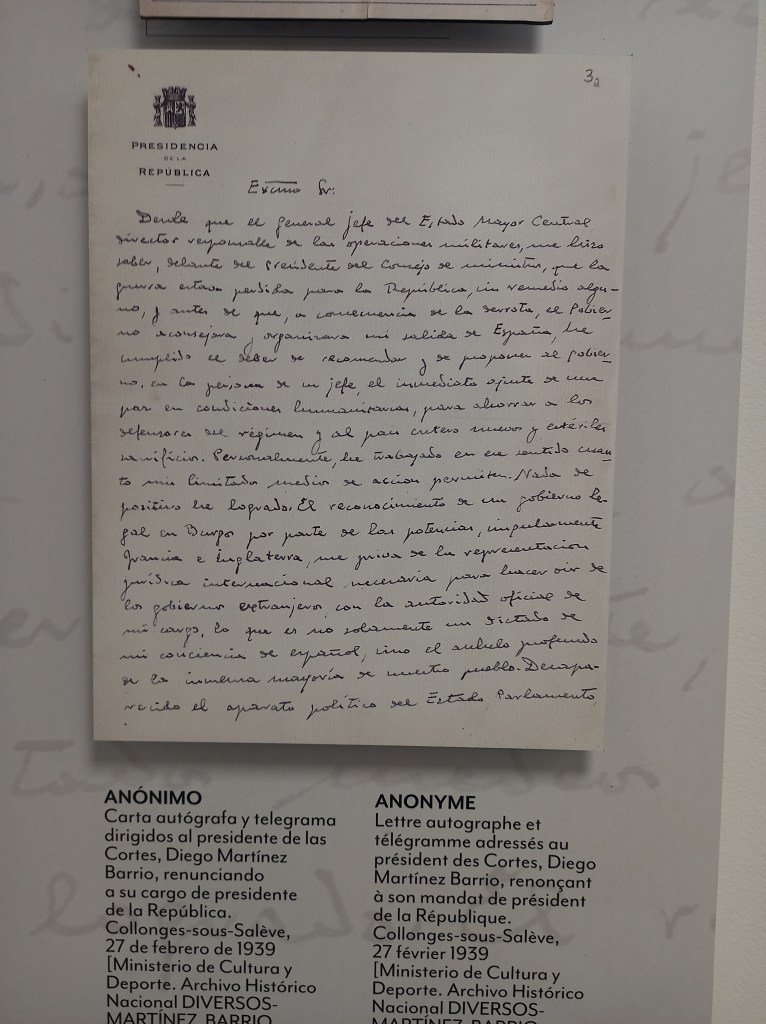 3₂
PRESIDENCIA
DE LA
REPÚBLICA
Excmo Sr:
Desde que el general jefe del Estado Mayor Central
director responsable de las operaciones militares, me hizo
saber, delante del presidente del Consejo de ministros, que la
guerra estaba perdida para la República, sin remedio algu-
no, y antes de que, a consecuencia de la derrota, el Gobier-
no aconsejara y organizara mi salida de España, he
cumplido el deber de recomendar y de proponer al gobier-
no, en la persona de su jefe, el inmediato ajuste de una
paz en condiciones humanitarias, para ahorrar a los
defensores del régimen y al país entero nuevos y estériles
sacrificios. Personalmente, he trabajado en ese sentido cuan-
to mis limitados medios de acción permiten. Nada de
positivo he logrado. El reconocimiento de un gobierno le-
gal en Burgos por parte de las potencias, singularmente
Francia e Inglaterra, me priva de la representación
jurídica internacional necesaria para hacer oír de
los gobiernos extranjeros, con la autoridad oficial de
mi cargo, lo que es no solamente un dictado de
mi conciencia de español, sino el anhelo profundo
de la inmensa mayoría de nuestro pueblo. Desapa-
recido el aparato político del Estado, Parlamento,
ANÓNIMO
Carta autógrafa y telegrama
dirigidos al presidente de las
Cortes, Diego Martínez
Barrio, renunciando
a su cargo de presidente
de la República.
Collonges-sous-Salève,
27 de febrero de 1939
[Ministerio de Cultura y
Deporte. Archivo Histórico
Nacional DIVERSOS-
MARTÍNEZ_BARRIO
ANONYME
Lettre autographe et
télégramme adressés au
président des Cortes, Diego
Martínez Barrio, renonçant
à son mandat de président
de la République.
Collonges-sous-Salève,
27 février 1939
[Ministerio de Cultura y
Deporte. Archivo Histórico
Nacional DIVERSOS-
MARTÍNEZ_BARRIO